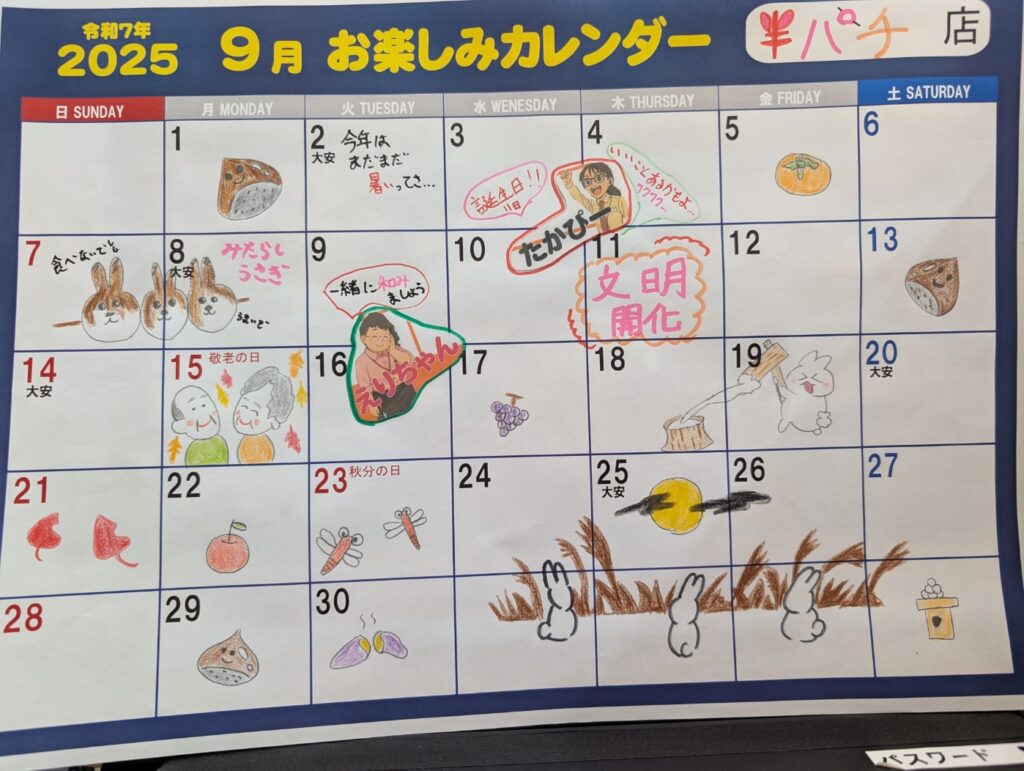 令和7年
2025 9月 お楽しみカレンダー
パチ 店
日 SUNDAY 月 MONDAY 火 TUESDAY 水 WENESDAY 木 THURSDAY 金 FRIDAY 土 SATURDAY
1
2
大安
今年は
まだまだ
暑いってさ…
3
誕生日!!
4
いいことあるかもよ…
ワクワク…
たかぴー
5
6
7
食べないでね
8
大安
みたらし
うさぎ
9
一緒に和み
ましょう
えりちゃん
10
11
文明
開化
12
13
14
大安
15 敬老の日
16
17
18
19
20
大安
21
22
23 秋分の日
24
25
大安
26
27
28
29
30
パスワード